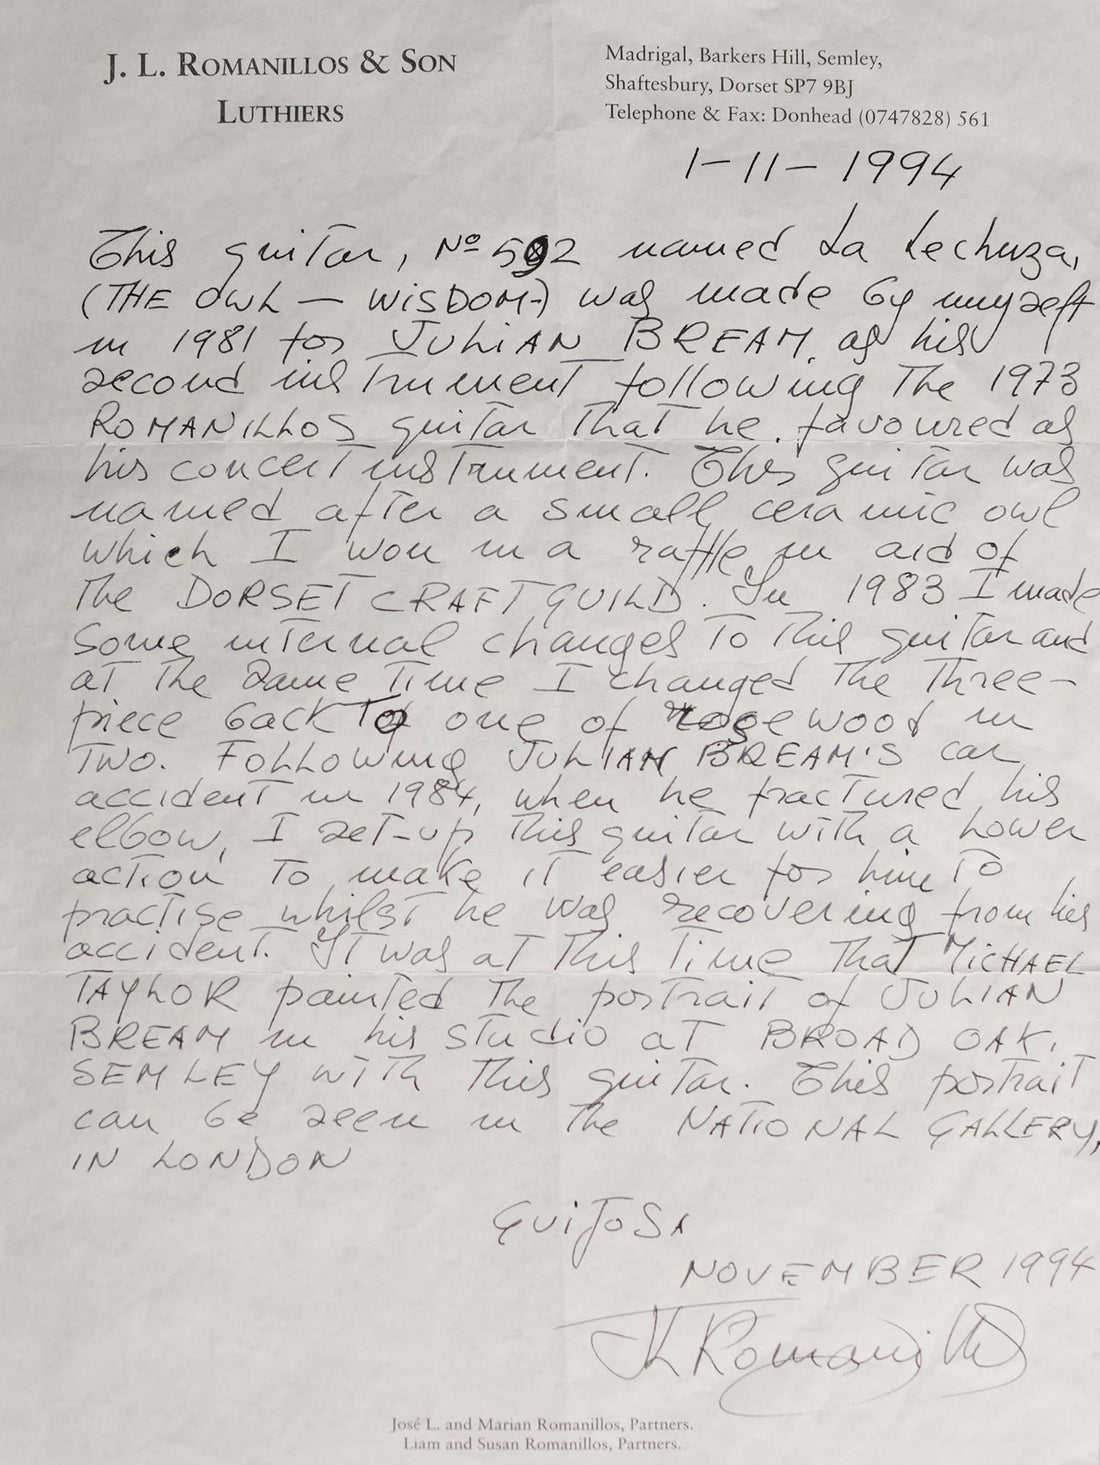 J. L. Romanillos & Son
Luthiers
Madrigal, Barkers Hill, Semley,
Shaftesbury, Dorset SP7 9BJ
Telephone & Fax: Donhead (0747828) 561
1-11-1994
This guitar, Nº 592 named La Lechuza,
(THE OWL - WISDOM-) was made by myself
in 1981 for JULIAN BREAM, as his
second instrument following the 1973
ROMANILLOS guitar that he favoured as
his concert instrument. This guitar was
named after a small ceramic owl
which I won in a raffle in aid of
the DORSET CRAFT GUILD. In 1983 I made
some internal changes to this guitar and
at the same time I changed the three-
piece back to one of rosewood in
TWO. FOLLOWING JULIAN BREAM'S car
accident in 1984, when he fractured his
elbow, I set-up this guitar with a lower
action to make it easier for him to
practise whilst he was recovering from his
accident. It was at this time that MICHAEL
TAYLOR painted the portrait of JULIAN
BREAM in his studio at BROAD OAK,
SEMLEY with this guitar. This portrait
can be seen in the NATIONAL GALLERY,
IN LONDON
GUIJOSA
NOVEMBER 1994
JL Romanillos
José L. and Marian Romanillos, Partners.
Liam and Susan Romanillos, Partners.